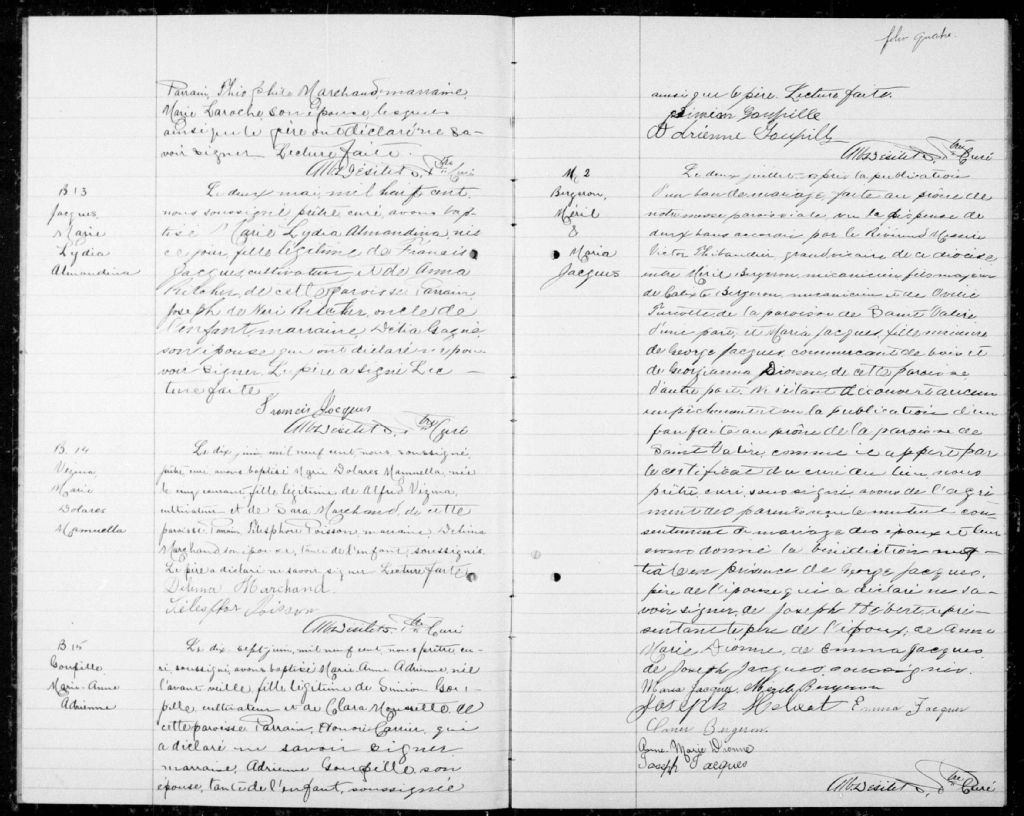 Parrain, Théophile Marchand, marraine,
Marie Laroche son épouse lesquels
ainsi que le père ont déclaré ne sa-
voir signer Lecture faite.
Désilets, Ptre Curé
B 13
Jacques
Marie
Lydia
Almandina
Le deux mai, mil neuf cent,
nous soussigné prêtre curé, avons bap-
tisé Marie Lydia Almandina, née
ce jour, fille légitime de Francis
Jacques, cultivateur et de Anna
de cette paroisse Parrain,
Joseph de Néri oncle de
l'enfant, marraine, Délia Gagné
son épouse qui ont déclaré ne pou-
voir signer. Le père a signé Lec-
ture faite
Francis Jacques
Désilets, Ptre Curé
B. 14
Vezina
Marie
Dolares
Mannuella
Le dix juin, mil neuf cent, nous, soussigné,
prêtre curé avons baptisé Marie Dolares Mannuella, née
le cinq courant, fille légitime de Alfred Vezina,
cultivateur et de Sara Marchand, de cette
paroisse Parrain Télesphore Poisson, marraine Delima
Marchand son épouse, tante de l'enfant, soussignés.
Le père a déclaré ne savoir signer Lecture faite
Delima Marchand
Télesphor Poisson
Désilets Ptre Curé
B 15
Goupille
Marie-Anne
Adrienne
Le dix-sept juin, mil neuf cent, nous prêtre cu-
ré, soussigné, avons baptisé Marie Anne Adrienne, née
l'avant veille fille légitime de Siméon Gou-
pille, cultivateur et de Clara de
cette paroisse Parrain, Honoré Carrier, qui
a déclaré ne savoir signer
marraine, Adrienne Goupille, son
épouse, tante de l'enfant, soussignée
folio quatre.
ainsi que le père. Lecture faite.
Siméon Goupille
Adrienne Goupille
Désilets, Ptre Curé
M 2
Bergeron,
Méril
&
Maria
Jacques
Le deux juillet après la publication
d'un ban de mariage, faite au prône de
notre messe paroissiale vu la dispense de
deux bans accordée par le Révérend Messire
Victor Thibaudier, grand vicaire de ce diocèse
entre Méril Bergeron, mécanicien fils majeur
de Calixte Bergeron, mécanicien et de Exilie
Turcotte de la paroisse de Saint Valère
d'une part; et Maria Jacques, fille mineure
de George Jacques, commerçant de bois et
de Georgianna Dionne, de cette paroisse
d'autre part. Ne s'étant découvert aucun
empêchement vu la publication d'un
ban faite au prône de la paroisse de
Saint Valère, comme il appert par
le certificat du curé du lieu, nous
prêtre, curé, soussigné, avons de l'agré-
ment des parents reçu le mutuel con-
sentement de mariage des époux et leur
avons donné la bénédiction nup-
tiale en présence de George Jacques,
père de l'épouse qui a déclaré ne sa-
voir signer, de Joseph Hébert, repré-
sentant le père de l'époux, de Anna
Marie Dionne, de Emma Jacques
de Joseph Jacques, soussignés.
Maria Jacques, Merile Bergeron
Joseph Hebert Emma Jacques
Bergeron.
Anne-Marie Dionne
Joseph Jacques
Désilets, Ptre Curé